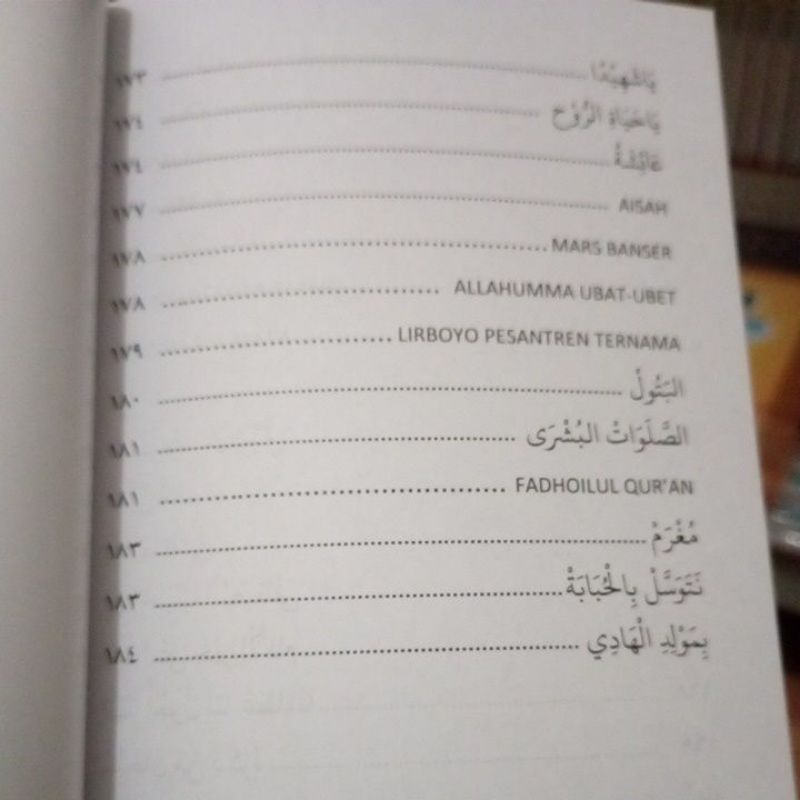 يَاشَهِيْدًا ........ ١٧٣
يَاحَيَاةِ الرُّوْحِ ........ ١٧٤
عَائِشَةُ ........ ١٧٤
AISAH ........ ١٧٧
MARS BANSER ........ ١٧٨
ALLAHUMMA UBAT-UBET ........ ١٧٨
LIRBOYO PESANTREN TERNAMA ........ ١٧٩
البَتُولُ ........ ١٨٠
الصَّلَوَاتُ البُشْرَى ........ ١٨١
FADHOILUL QUR'AN ........ ١٨١
مُغْرَمْ ........ ١٨٣
نَتَوَسَّلْ بِالْحُبَابَةْ ........ ١٨٣
بِمَوْلِدِ الْهَادِي ........ ١٨٤